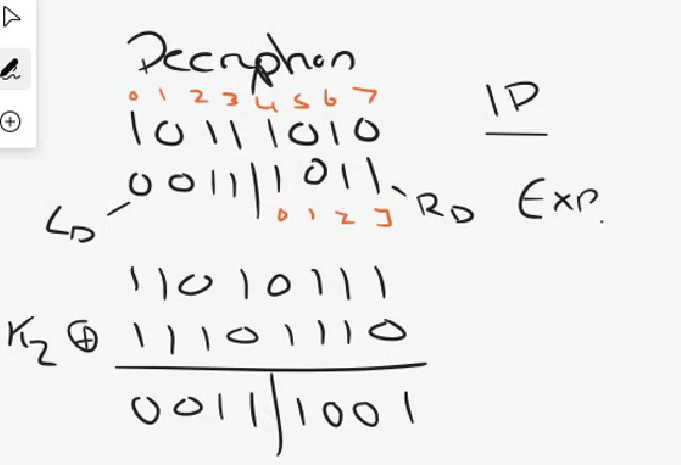 Decryption
0 1 2 3 4 5 6 7
10111010 IP
0011|1011 Exp.
L0 R0
0 1 2 3
11010111
K2 ⊕ 11101110
0011|1001